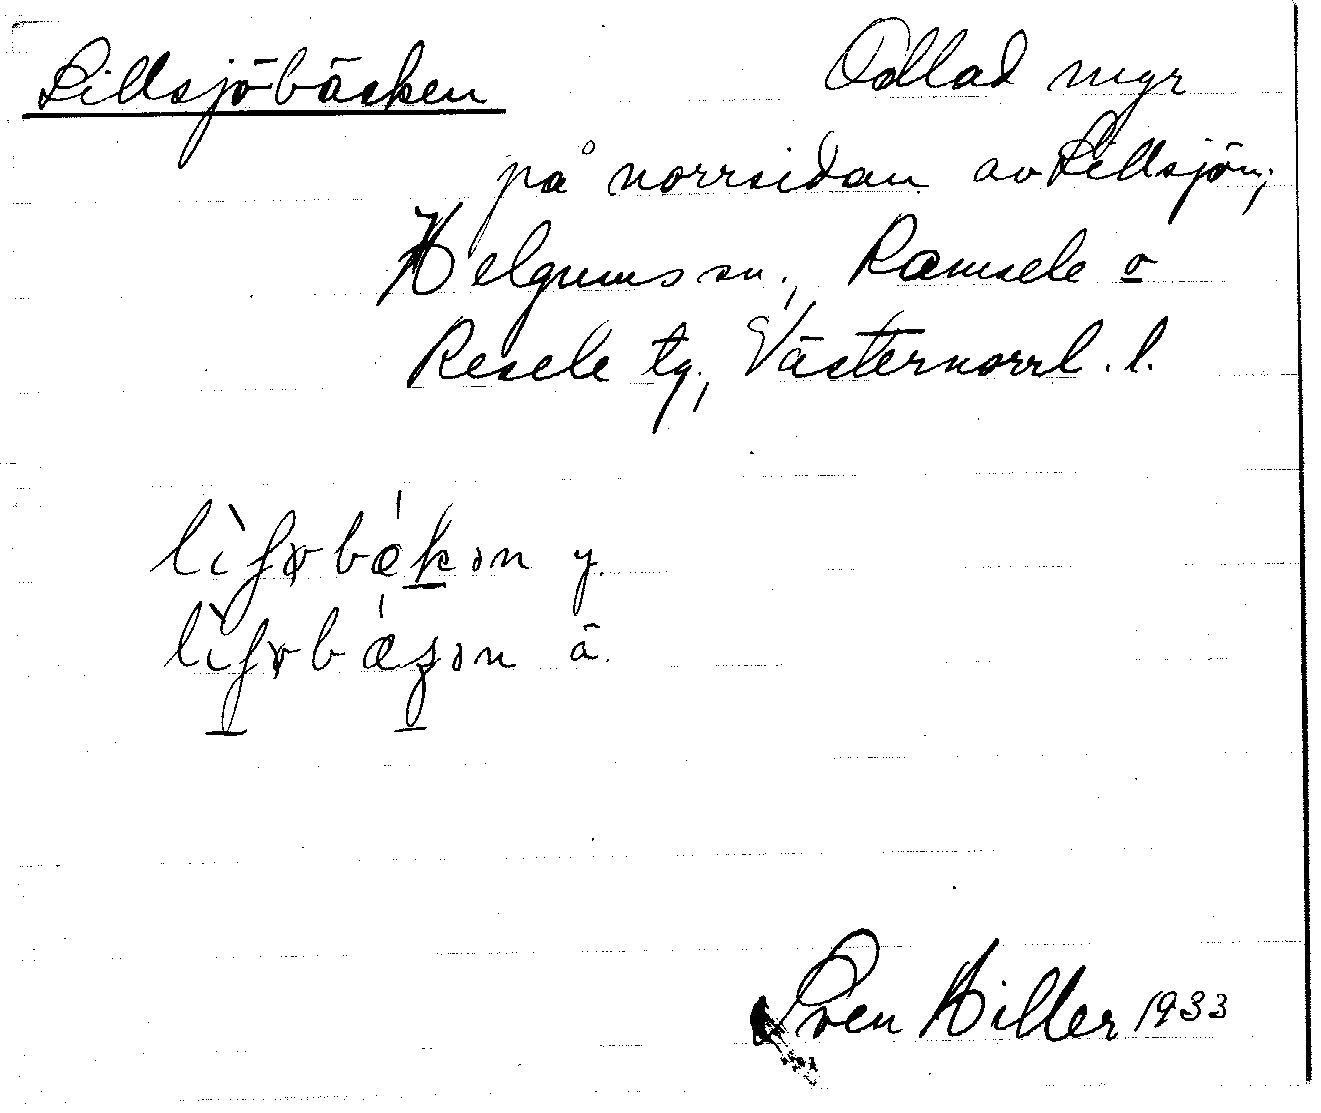 Lillsjöbäcken
Odlad myr
på norrsidan av Lillsjön,
Helgums sn., Ramsele o
Resele tg., Västernorrl. l.
y.
ä.
Sven Hiller 1933